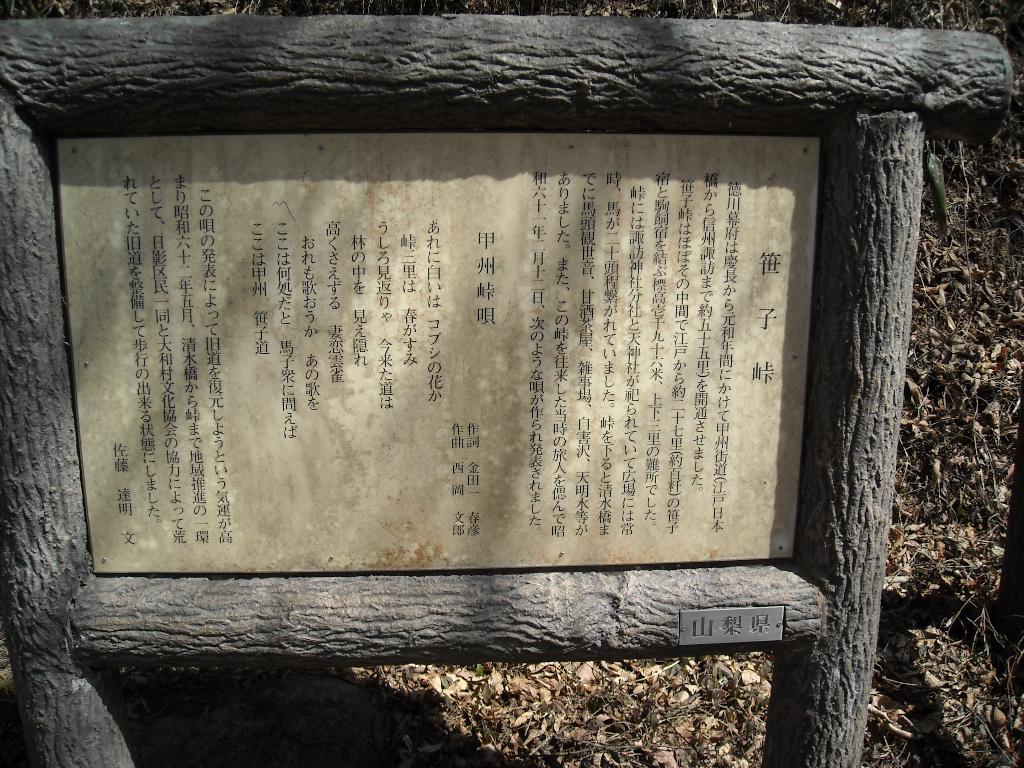 笹子峠
徳川幕府は慶長から元和年間にかけて甲州街道(江戸日本
橋から信州諏訪まで約五十五里)を開通させました。
笹子峠はほぼその中間で江戸から約二十七里(約百粁)の笹子
宿と駒飼宿を結ぶ標高壱千九十六米、上下三里の難所でした。
峠には諏訪神社分社と天神社が祀られていて広場には常
時、馬が二十頭程繋がれていました。峠を下ると清水橋ま
でに馬頭観世音、甘酒茶屋、雑事場、自害沢、天明水等が
ありました。また、この峠を往来した当時の旅人を偲んで昭
和六十一年二月十二日、次のような唄が作られ発表されました。
甲州峠唄
作詞 金田一 春彦
作曲 西岡 文郎
あれに白いは コブシの花か
峠三里は 春がすみ
うしろ見返りゃ 今来た道は
林の中を 見え隠れ
高くさえずる 妻恋雲雀
おれも歌おうか あの歌を
ここは何処だと 馬子衆に問えば
ここは甲州 笹子道
この唄の発表によって旧道を復元しようという気運が高
まり昭和六十二年五月、清水橋から峠まで地域推進の一環
として、日影区民一同と大和村文化協会の協力によって荒
れていた旧道を整備して歩行の出来る状態にしました。
佐藤 達明 文
山梨県